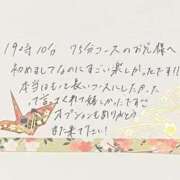 19時10分 75分コースのお兄様へ
初めましてなのにすごい楽しかったです!!
本当はもっと長いコースにしたかった
って言ってくれて嬉しかったです♡
オプションもありがとう
また来てたい!